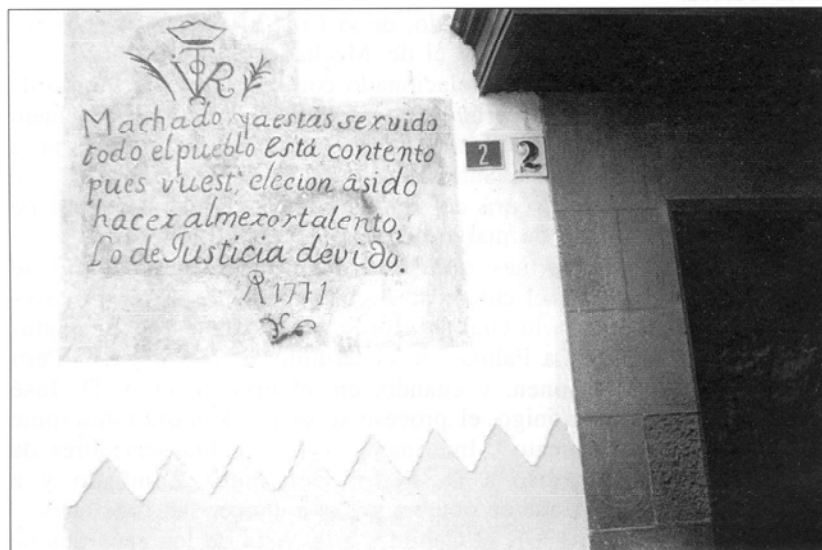 VTR
Machado ya estas servido
todo el pueblo está contento
pues vuest.ͣ elecion âsido
hacer almexor talento,
Lo de Justicia devido.
A 1771
2 2